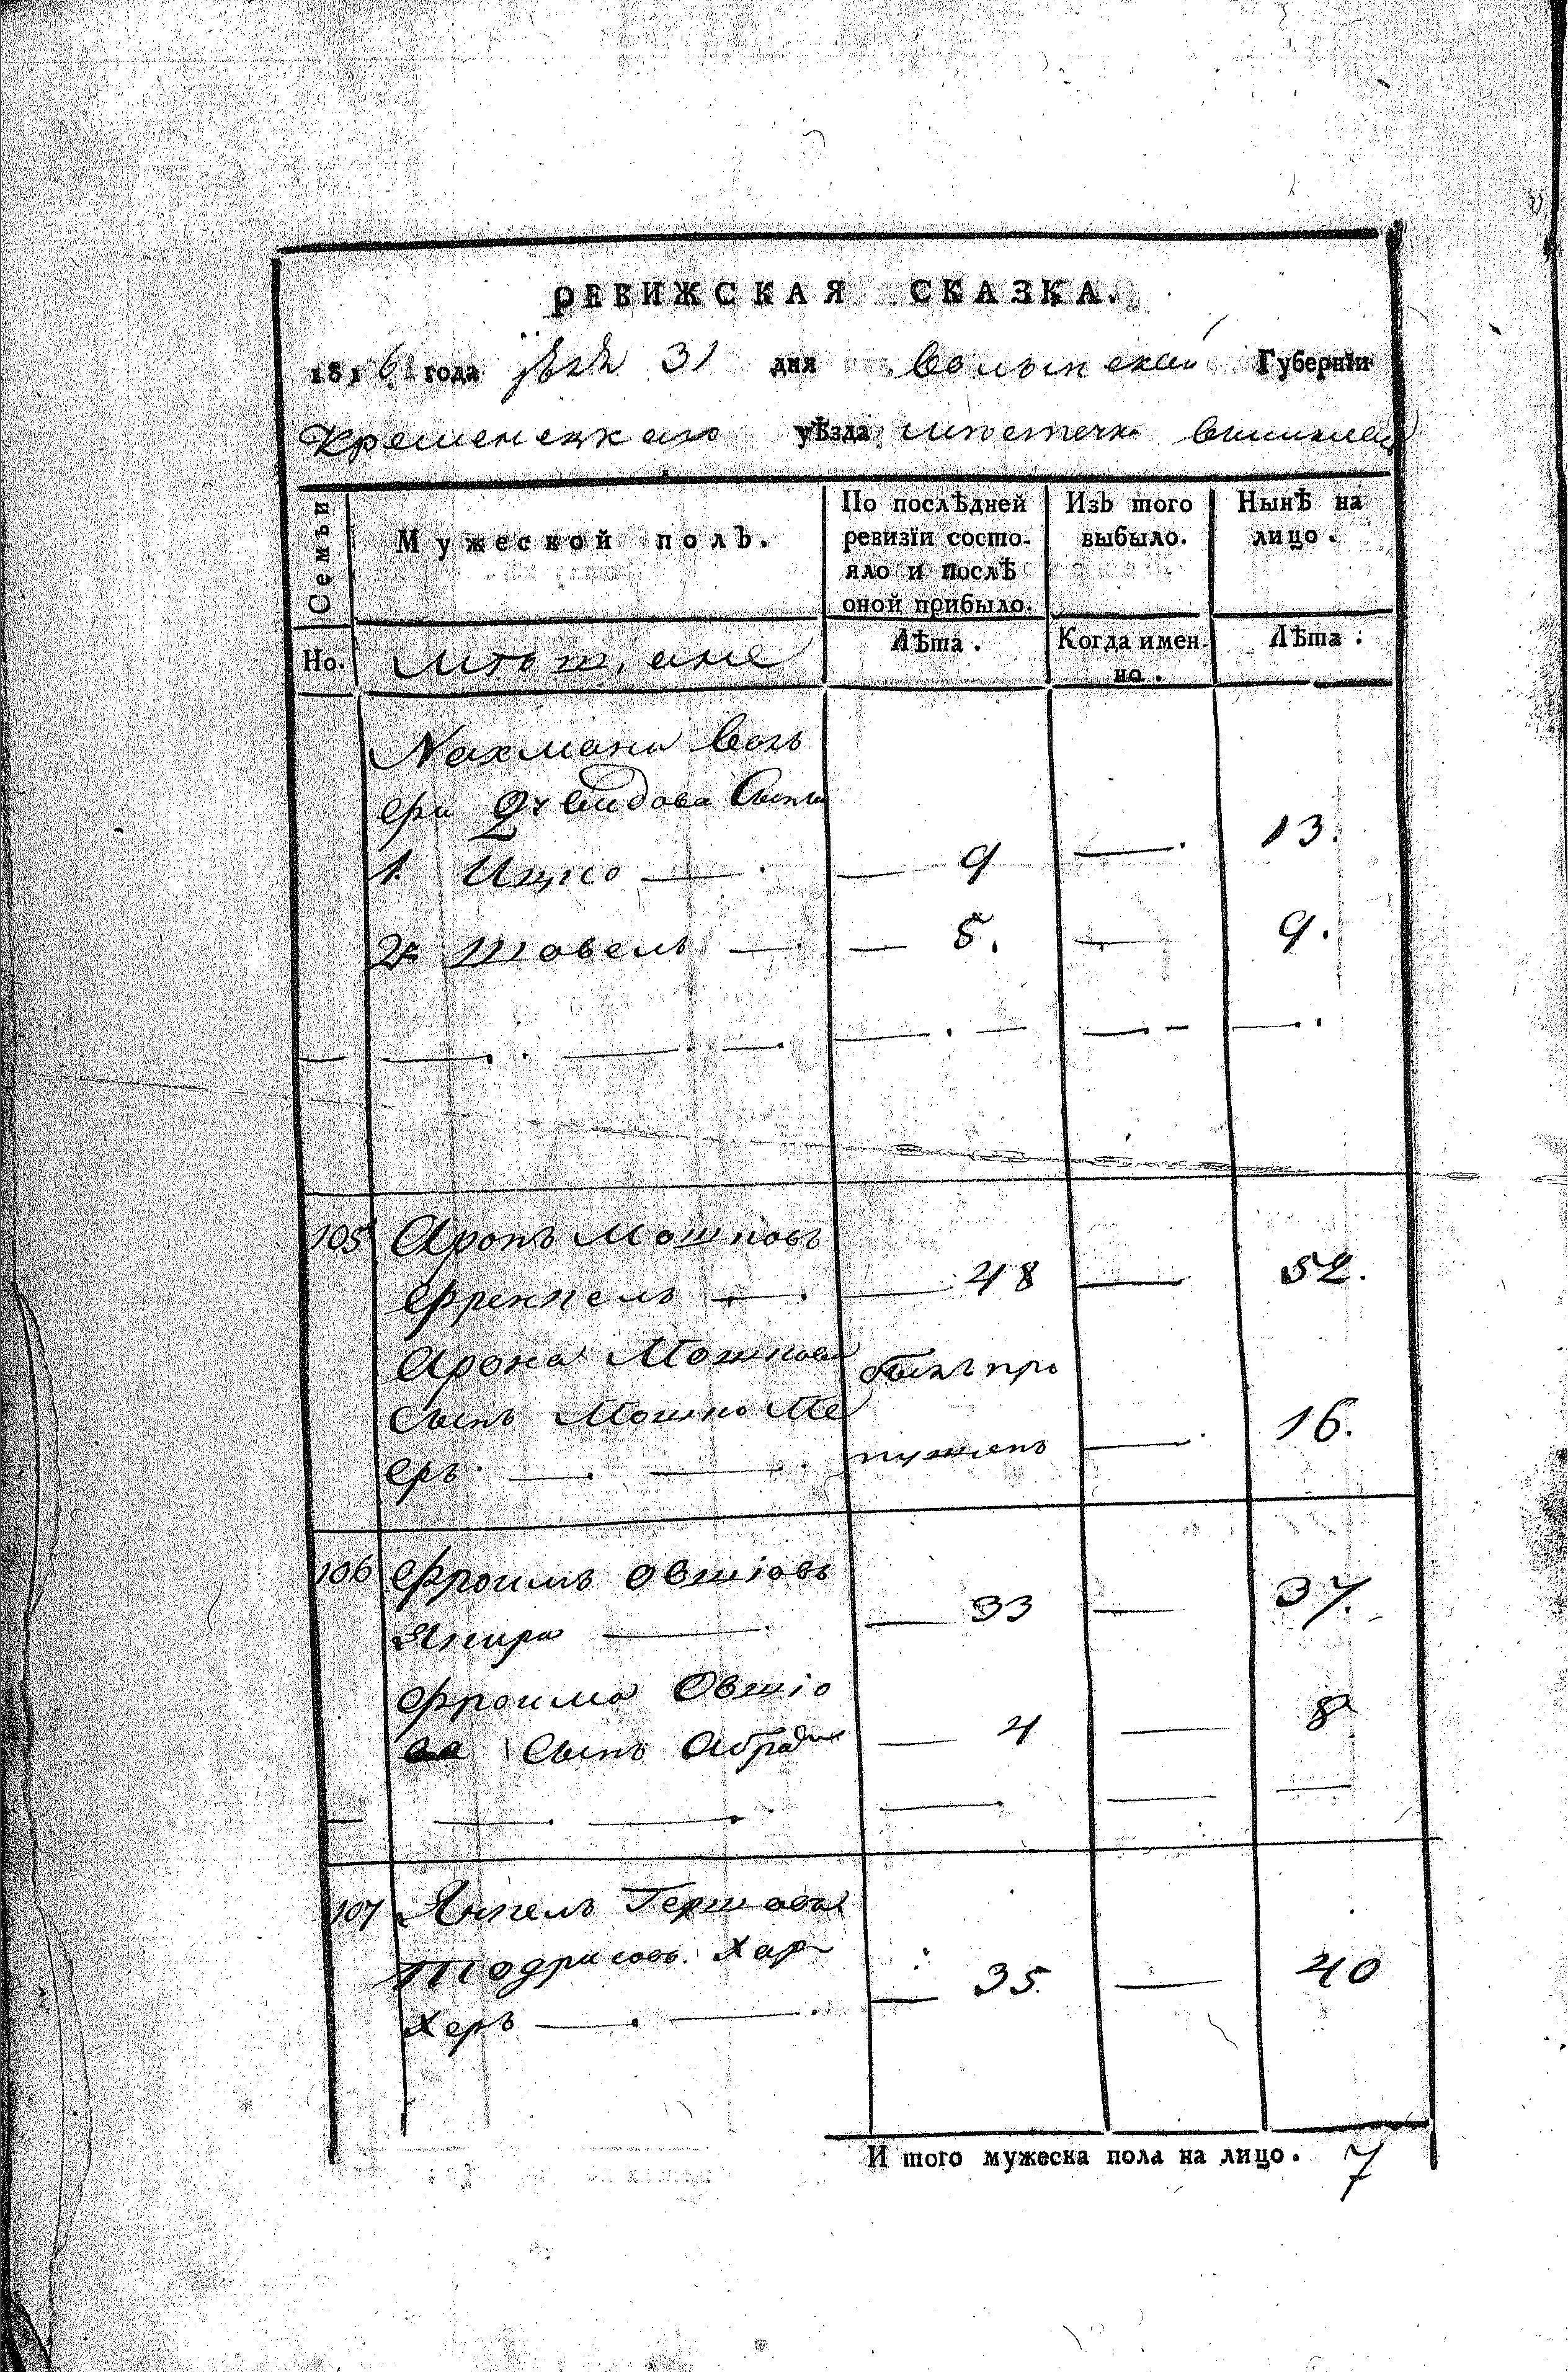 РЕВИЖСКАЯ СКАЗКА.
1816 года 31 дня волынской Губернїи
Кременецкаго уѣзда местечка
Семьи
Мужеской полъ.
По послѣдней ревизїи состо-
яло и послѣ
оной прибыло.
Изъ того
выбыло.
Нынѣ на
лицо.
Но.
мещане
Лѣта.
Когда имен-
но.
Лѣта:
Нахмана Вол
ера Давидова Сыны
1. Ицко — — 9 — 13.
2. Товель — — 5. — 9.
105 Аронъ Мошковъ
Френкель — — 48 — 52.
Арона Мошкова былъ про
сынъ Мошко Ме
еръ — — пущенъ — 16.
106 Фроимъ Овшіовъ
— — 33 — 37.
Фроима Овшіо
ва Сынъ Абрамъ — 4 — 8
107 Янкель Гершова
Тодрисовъ Хар
херъ — — 35. — 40
И того мужеска пола на лицо. 7